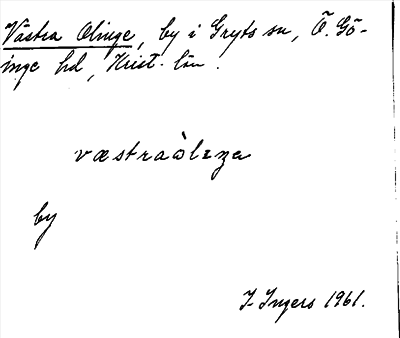 Västra Olinge, by i Gryts sn, Ö. Gö-
inge hd, Krist. län.
væstraòlɪŋa
by
I. Ingers 1961.